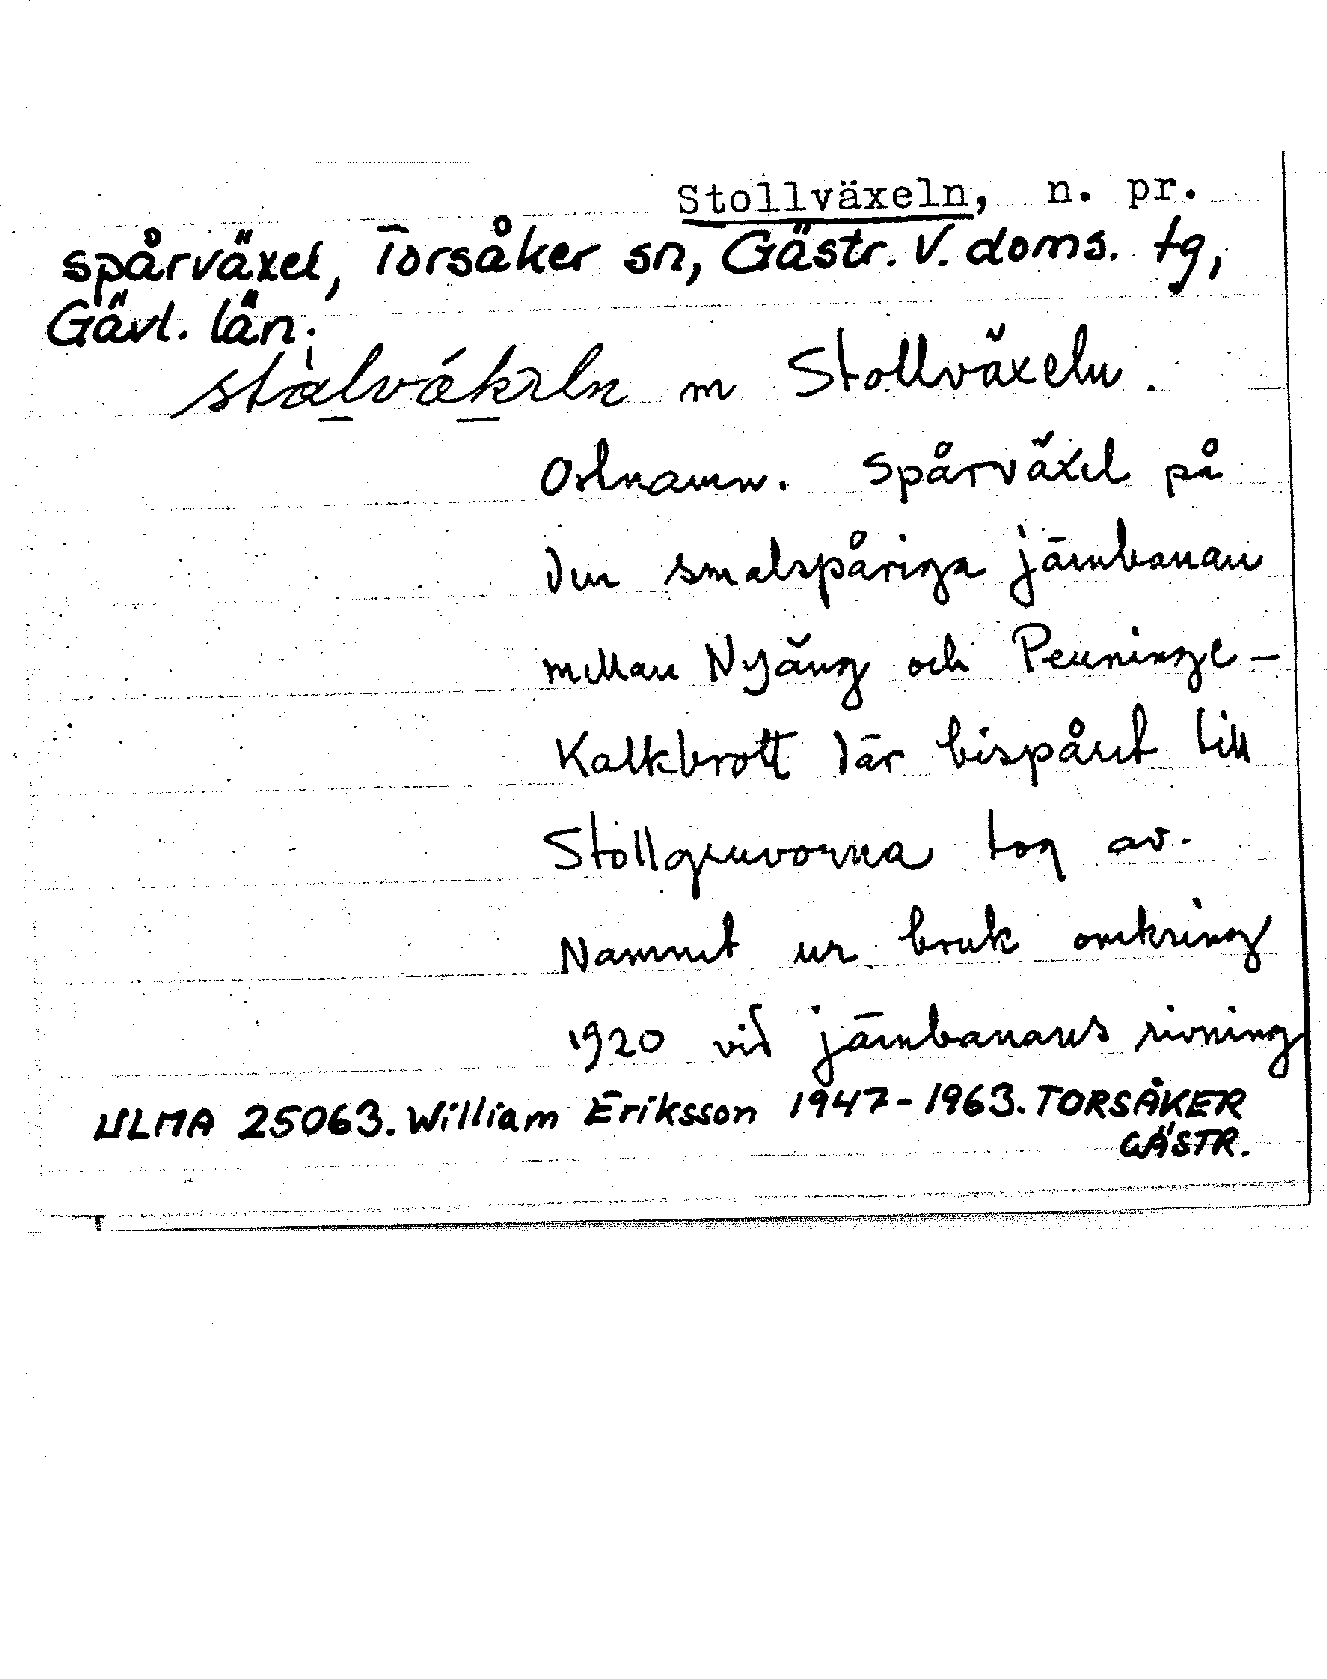 Stollväxeln, n. pr.
spårväxel, Torsåker sn, Gästr. V. doms. tg,
Gävl. län.
m Stollväxeln.
Ortnamn. Spårväxel på
den smalspåriga järnbanan
mellan Nyäng och Penninge-
Kalkbrott där bispåret till
Stollgruvorna tog av.
Namnet ur bruk omkring
1920 vid järnbanans rivning
ULMA 25063. William Eriksson 1947-1963. TORSÅKER
GÄSTR.